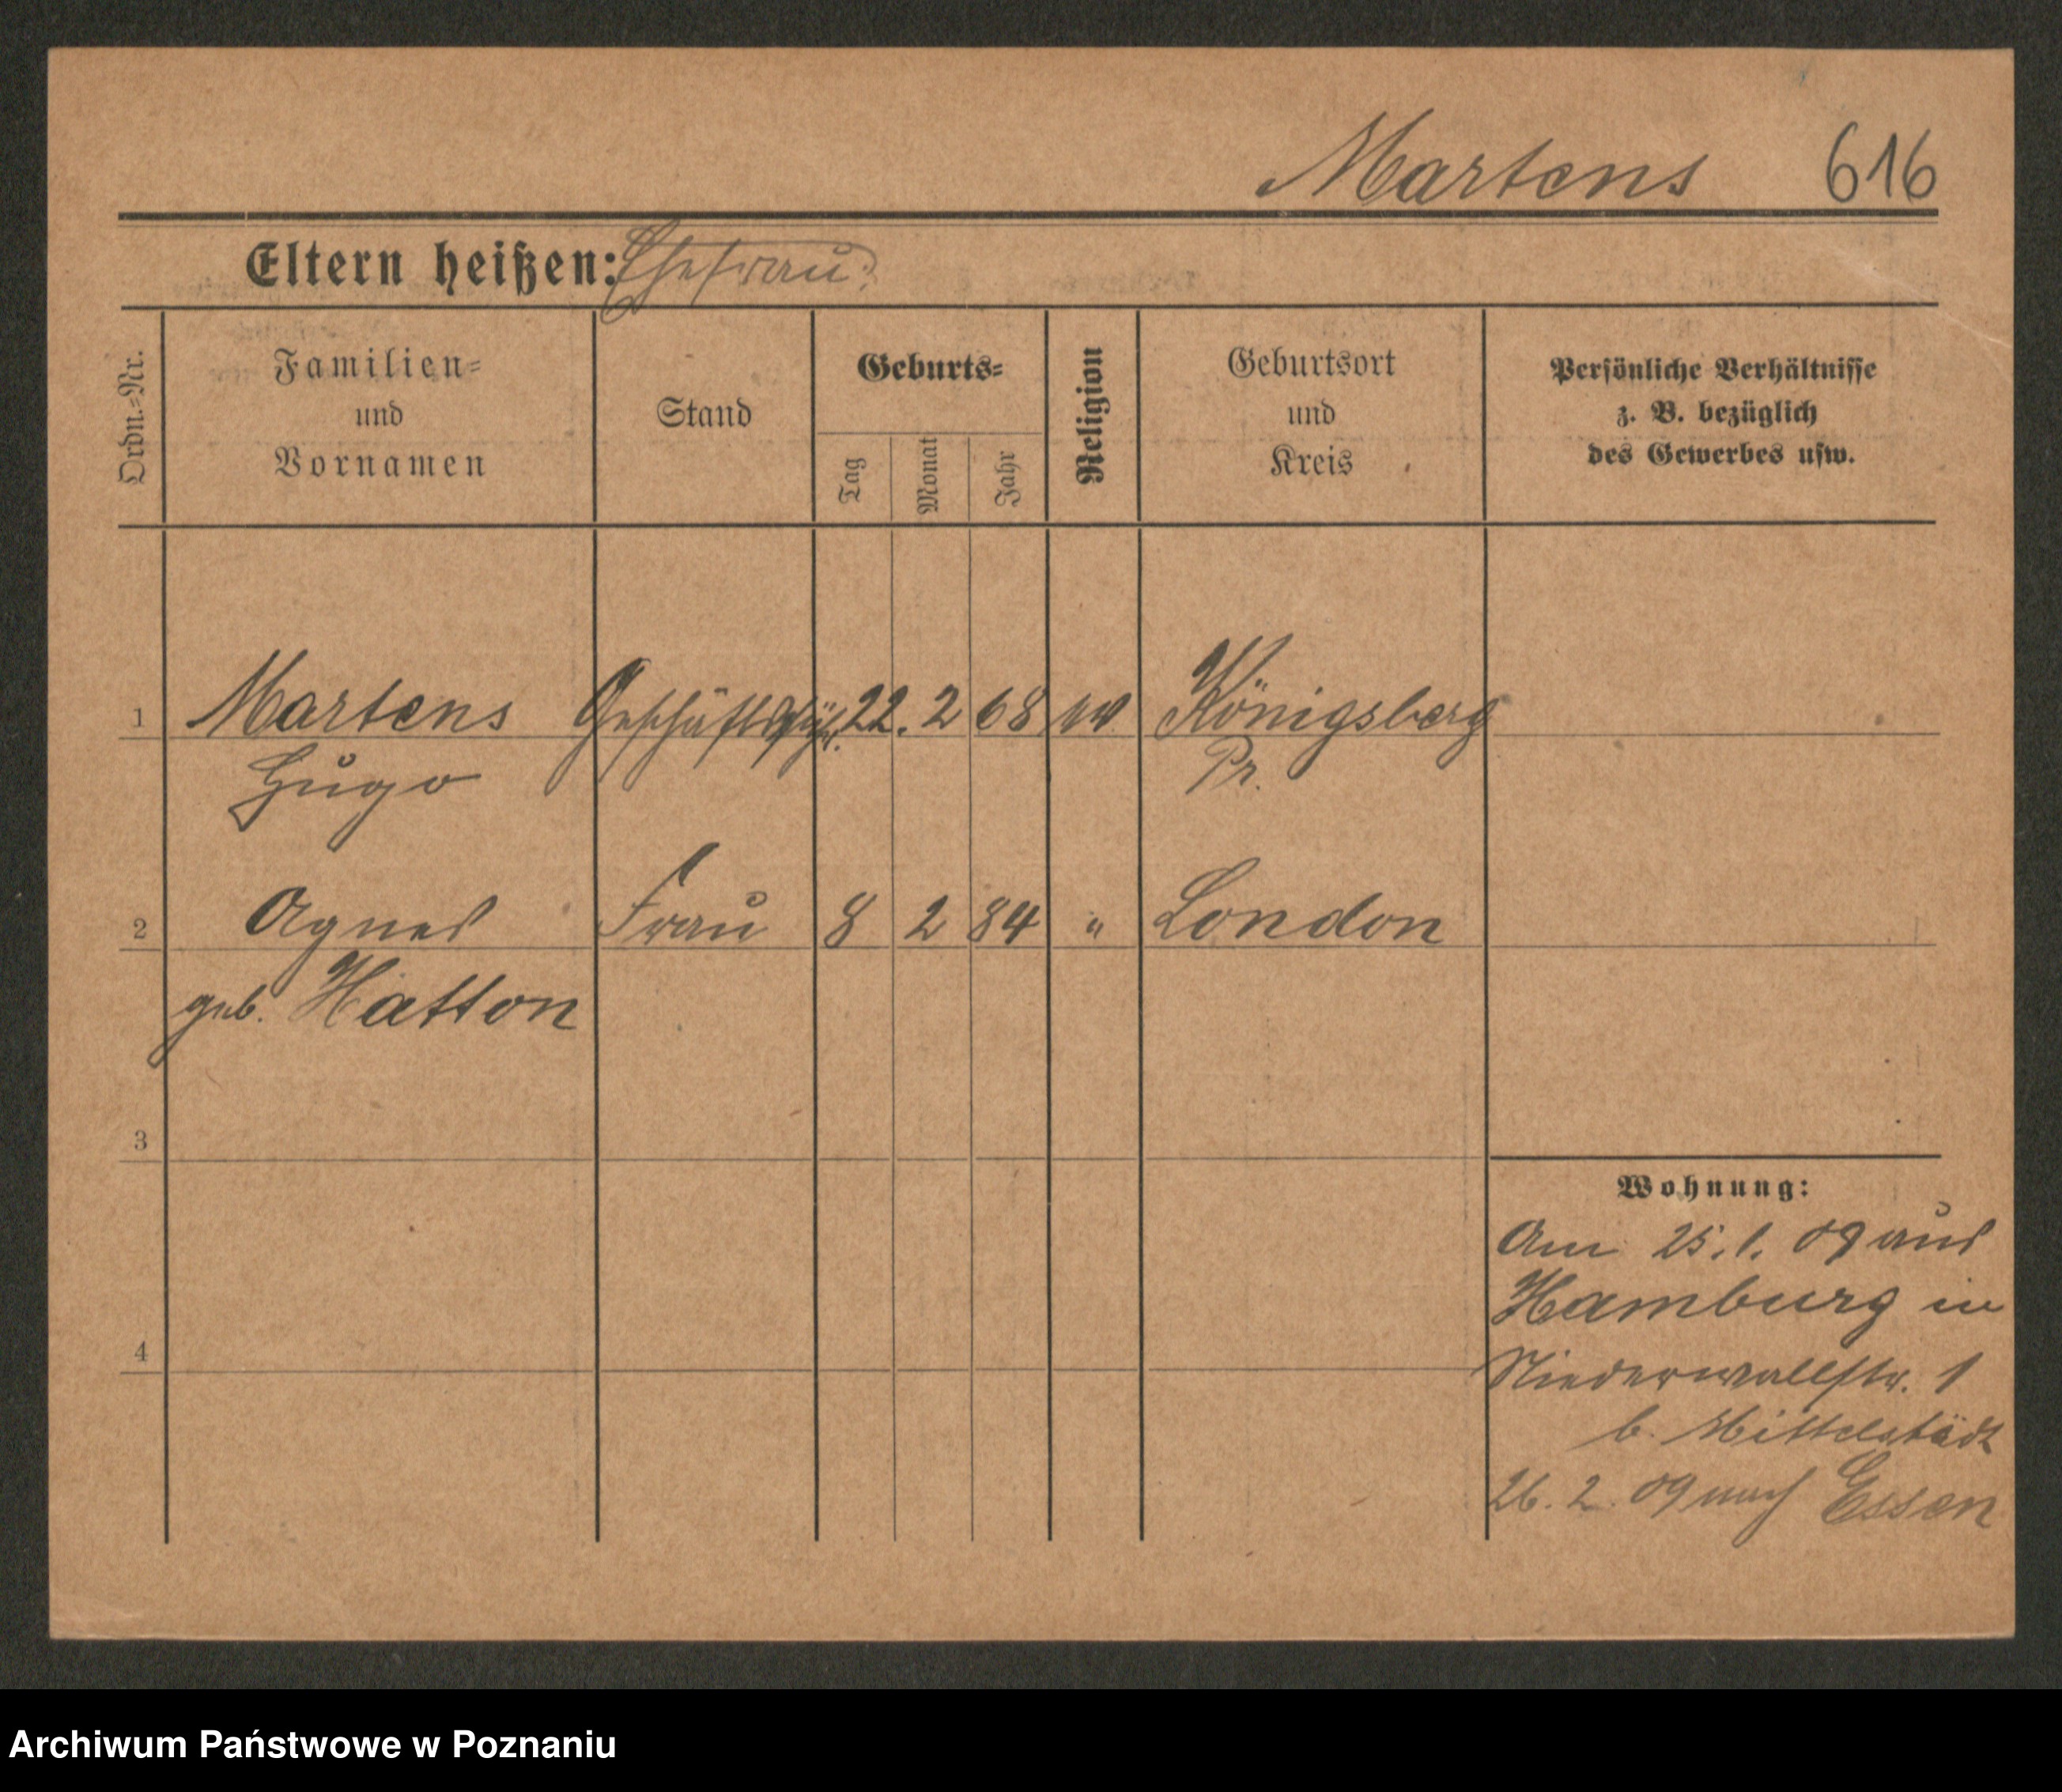 Martens 616
Eltern heißen: Ehefrau:
Ordn.-Nr.
Familien-
und
Vornamen
Stand
Geburts-
Tag
Monat
Jahr
Religion
Geburtsort
und
Kreis
Persönliche Verhältnisse
z. B. bezüglich
des Gewerbes usw.
1 Martens Geschäftsführ. 22. 2 68 Königsberg
Hugo Pr.
2 Agnes Frau 8 2 84 " London
geb. Hatton
3
Wohnung:
Am 25. 1. 09 aus
Hamburg in
4
Niederwallstr. 1
b. Mittelstädt
26. 2. 09 nach Essen
Archiwum Państwowe w Poznaniu